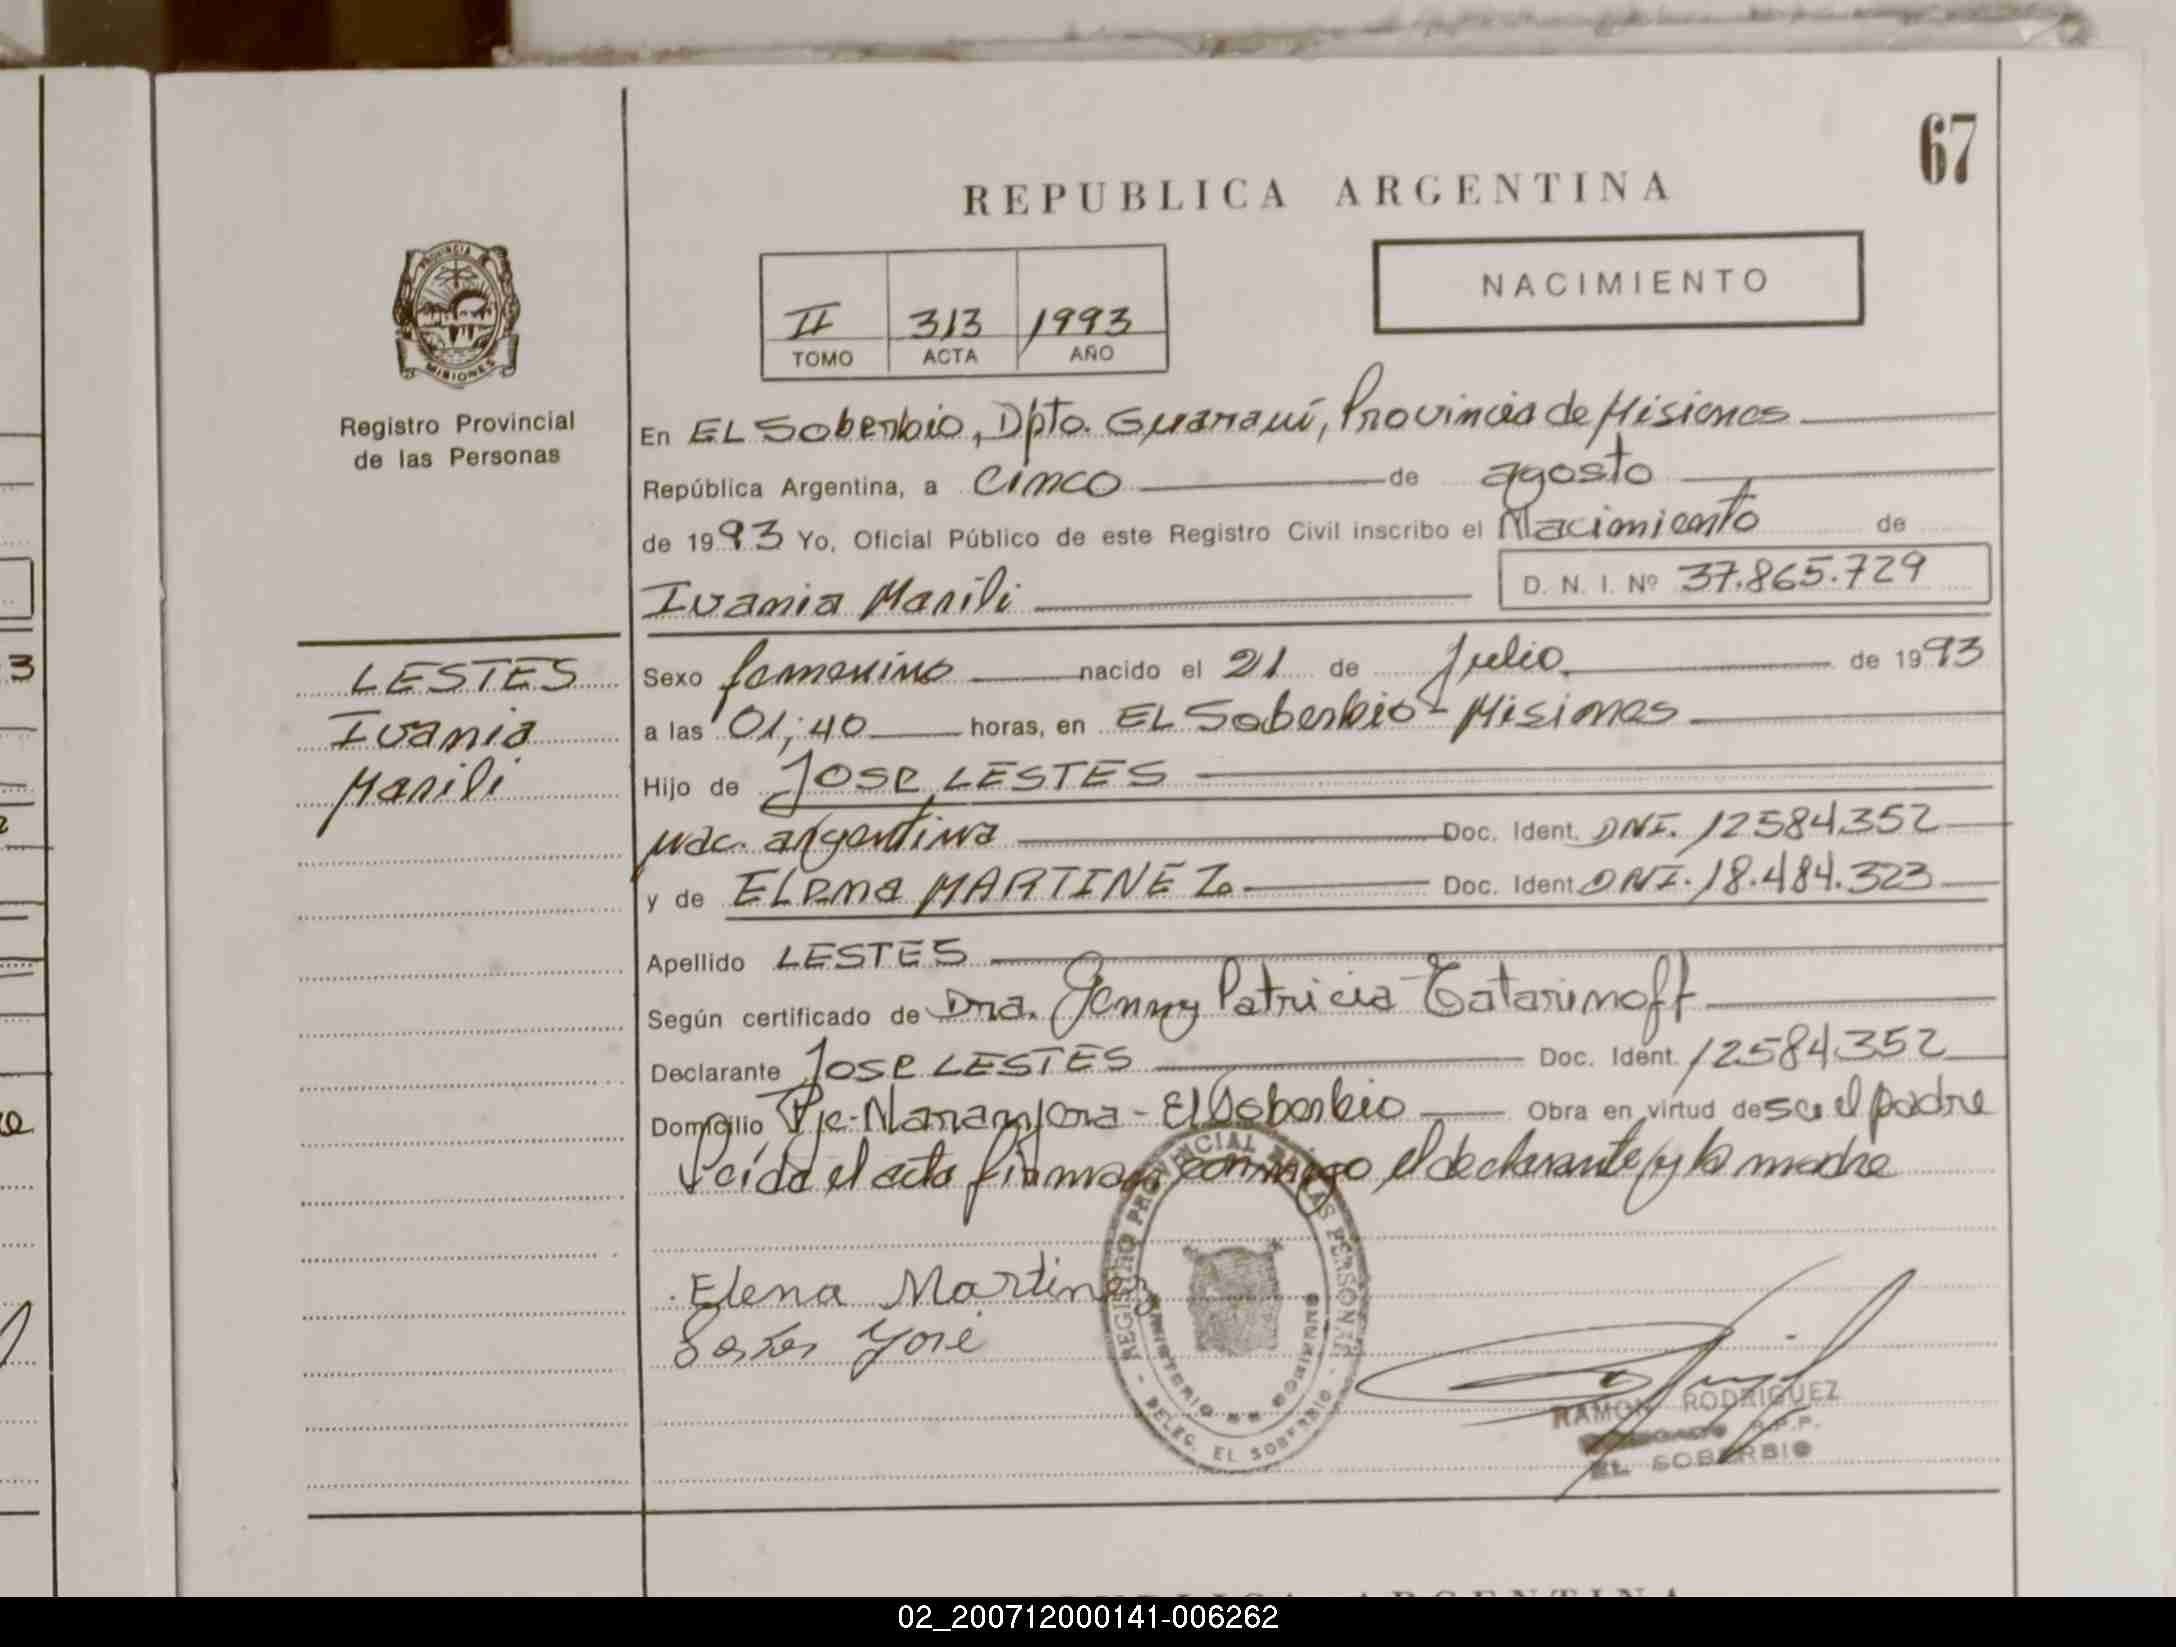 67
REPUBLICA ARGENTINA
NACIMIENTO
II 313 1993
TOMO ACTA AÑO
PROVINCIA DE
MISIONES
Registro Provincial
de las Personas
En EL Soberbio, Dpto. Guaraní, Provincia de Misiones
República Argentina, a cinco de agosto
de 1993 Yo, Oficial Público de este Registro Civil inscribo el Nacimiento de
Ivania Marili D. N. I. Nº 37.865.729
LESTES
Ivania
Marili
Sexo femenino nacido el 21 de Julio de 1993
a las 01;40 horas, en EL Soberbio - Misiones
Hijo de JOSE LESTES
nac. argentina Doc. Ident. DNI. 12584352
y de ELENA MARTINEZ Doc. Ident. DNI. 18.484.323
Apellido LESTES
Según certificado de Dra. Jenny Patricia Tatarinoff
Declarante JOSE LESTES Doc. Ident. 12584352
Domicilio Pje- - El Soberbio Obra en virtud de ser el padre
Leída el acta firman conmigo el declarante y la madre
Elena Martinez
José
REGISTRO PROVINCIAL DE LAS PERSONAS
MINISTERIO DE GOBIERNO
- DELEG. EL SOBERBIO -
RAMON RODRIGUEZ
DELEGADO R.P.P.
EL SOBERBIO
02_200712000141-006262